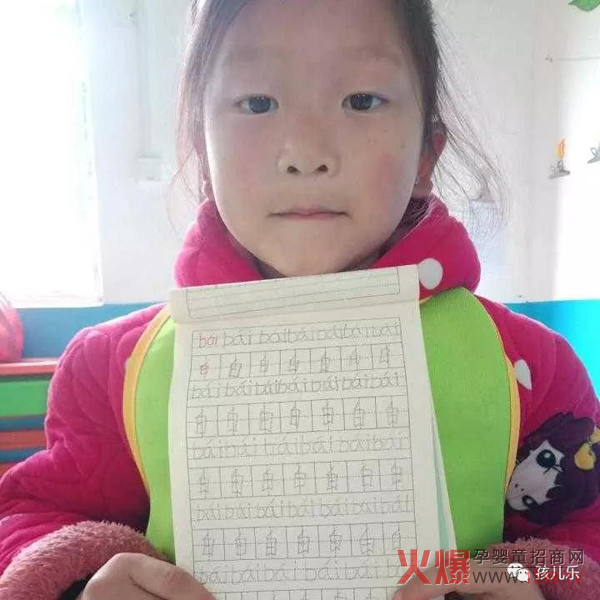 bái bái bái bái bái bái bái
白 白 白 白 白 白 白
bái bái bái bái bái bái bái
白 白 白 白 白 白 白
bái bái bái bái bái bái bái
白 白 白 白 白 白 白
bái bái bái bái bái bái bái
白 白 白 白 白 白 白
bái bái bái bái
火爆孕婴童招商网
孩儿乐